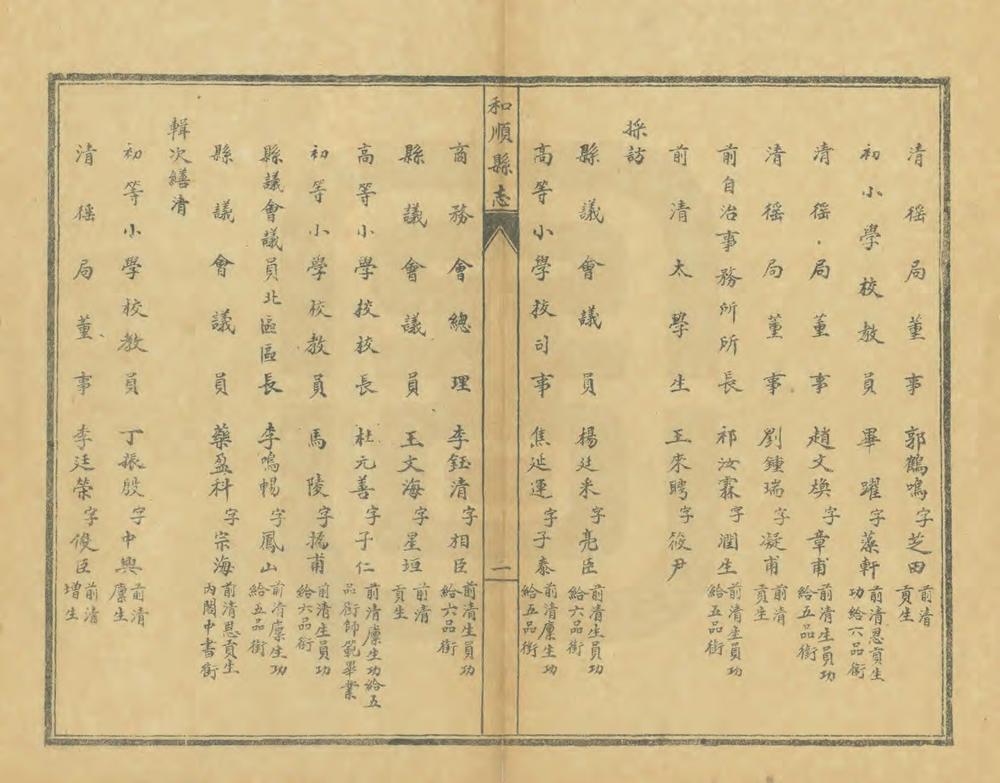 清徭局董事 郭鶴鳴字芝田 前清貢生
初小學校教員 畢躍字藻軒 前清恩貢生功給六品銜
清徭局董事 趙文煥字章甫 前清生員功給五品銜
清徭局董事 劉鍾瑞字凝甫 前清貢生
前自治事務所所長 祁汝霖字潤生 前清生員功給五品銜
前清太學生 王來聘字筱尹
採訪
縣議會議員 楊廷釆字亮臣 前清生員功給六品銜
高等小學校司事 焦延運字子泰 前清廩生功給五品銜
和順縣志
一
商務會總理 李鈺清字相臣 前清生員功給六品銜
縣議會議員 王文海字星垣 前清貢生
高等小學校校長 杜元善字子仁 前清廩生功給五品銜師範畢業
初等小學校教員 馬陵字撝甫 前清生員功給六品銜
縣議會議員北區區長 李鳴暢字鳳山 前清廩生功給五品銜
縣議會議員 藥盈科字宗海 前清恩貢生內閣中書銜
輯次繕清
初等小學校教員 丁振殷字中興 前清廩生
清徭局董事 李廷榮字俊臣 前清增生